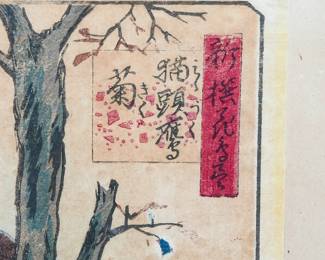 新撰花鳥尽
猫頭鷹
菊
きく